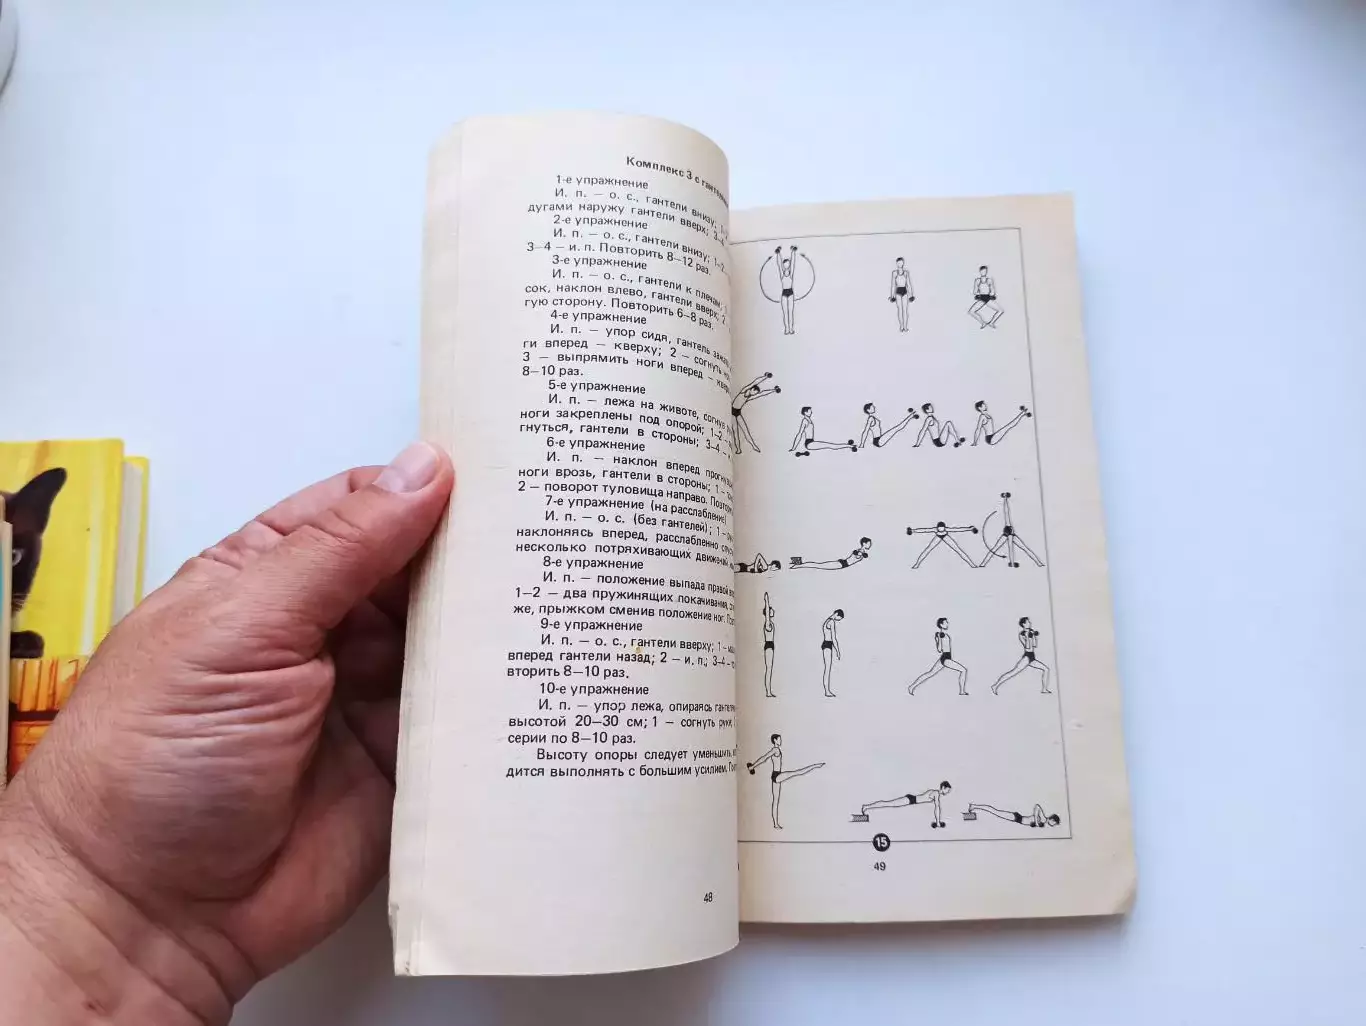 Комплекс 3 с гантелями
1-е упражнение
И. п. — о. с., гантели внизу;
дугами наружу гантели вверх; 3—4
2-е упражнение
И. п. — о. с., гантели внизу; 1—2
3—4 — и. п. Повторить 8—12 раз.
3-е упражнение
И. п. — о. с., гантели к плечам;
сок, наклон влево, гантели вверх; 2
гую сторону. Повторить 6—8 раз.
4-е упражнение
И. п. — упор сидя, гантель
ги вперед — кверху; 2 — согнуть
3 — выпрямить ноги вперед —
8—10 раз.
5-е упражнение
И. п. — лежа на животе, согнув
ноги закреплены под опорой; 1—2 —
гнуться, гантели в стороны; 3—4 —
6-е упражнение
И. п. — наклон вперед
ноги врозь, гантели в стороны; 1 —
2 — поворот туловища направо.
7-е упражнение (на расслабление)
И. п. — о. с. (без гантелей); 1 —
наклоняясь вперед, расслабленно
несколько потряхивающих движений,
8-е упражнение
И. п. — положение выпада правой
1—2 — два пружинящих покачивания,
же, прыжком сменив положение ног.
9-е упражнение
И. п. — о. с., гантели вверху; 1 —
вперед гантели назад; 2 — и. п.; 3—4 —
вторить 8—10 раз.
10-е упражнение
И. п. — упор лежа, опираясь
высотой 20—30 см; 1 — согнуть руки;
серии по 8—10 раз.
Высоту опоры следует уменьшить,
дится выполнять с большим усилием.
48
15
49